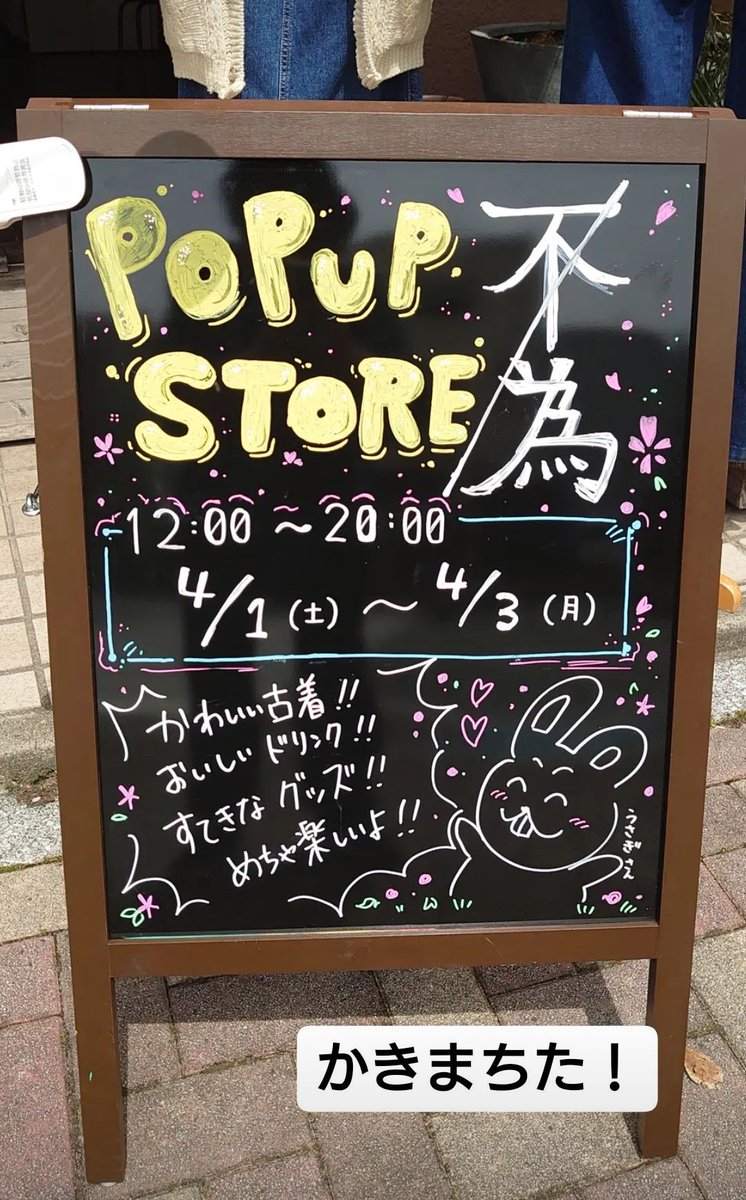 POPUP
STORE
不為
12:00 ~ 20:00
4/1(土)~4/3(月)
かわいい古着!!
おいしいドリンク!!
すてきなグッズ!!
めちゃ楽しいよ!!
うさぎさん
かきまちた!